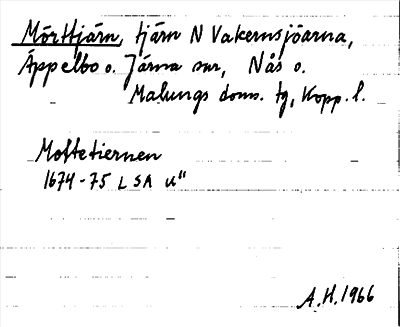 Mörttjärn, tjärn N Vakernsjöarna,
Äppelbo o. Järna snr, Nås o.
Malungs doms. tg, Kopp. l.
Mottetiernen
1674-75 LSA u"
A.H. 1966